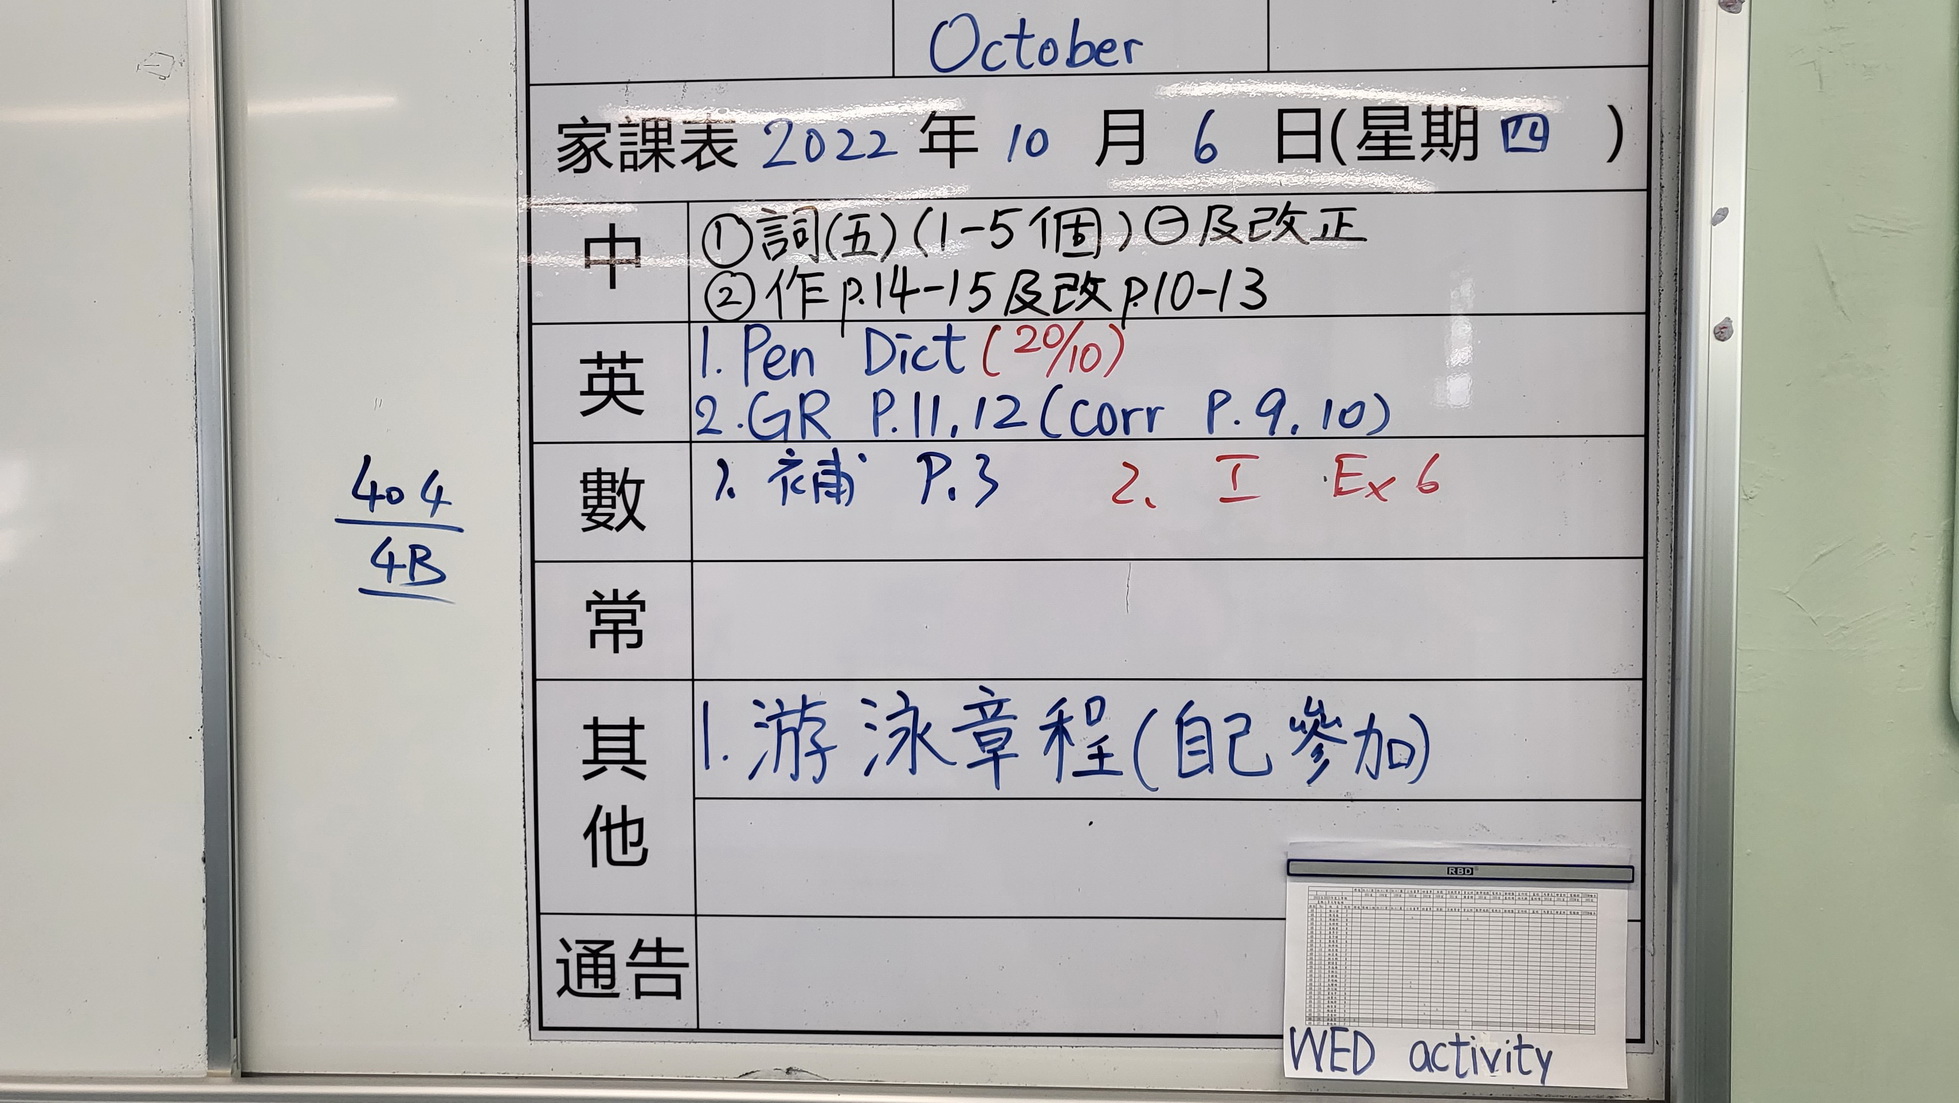 October
家課表 2022 年 10 月 6 日(星期 四 )
中
①詞(五)(1-5個)㊀及改正
②作p.14-15及改p.10-13
英
1. Pen Dict (20/10)
2. GR P.11, 12 (corr P. 9, 10)
數
1. 補 P.3 2. 工 Ex 6
常
其他
1. 游泳章程(自己參加)
通告
404
4B
RBD
WED activity